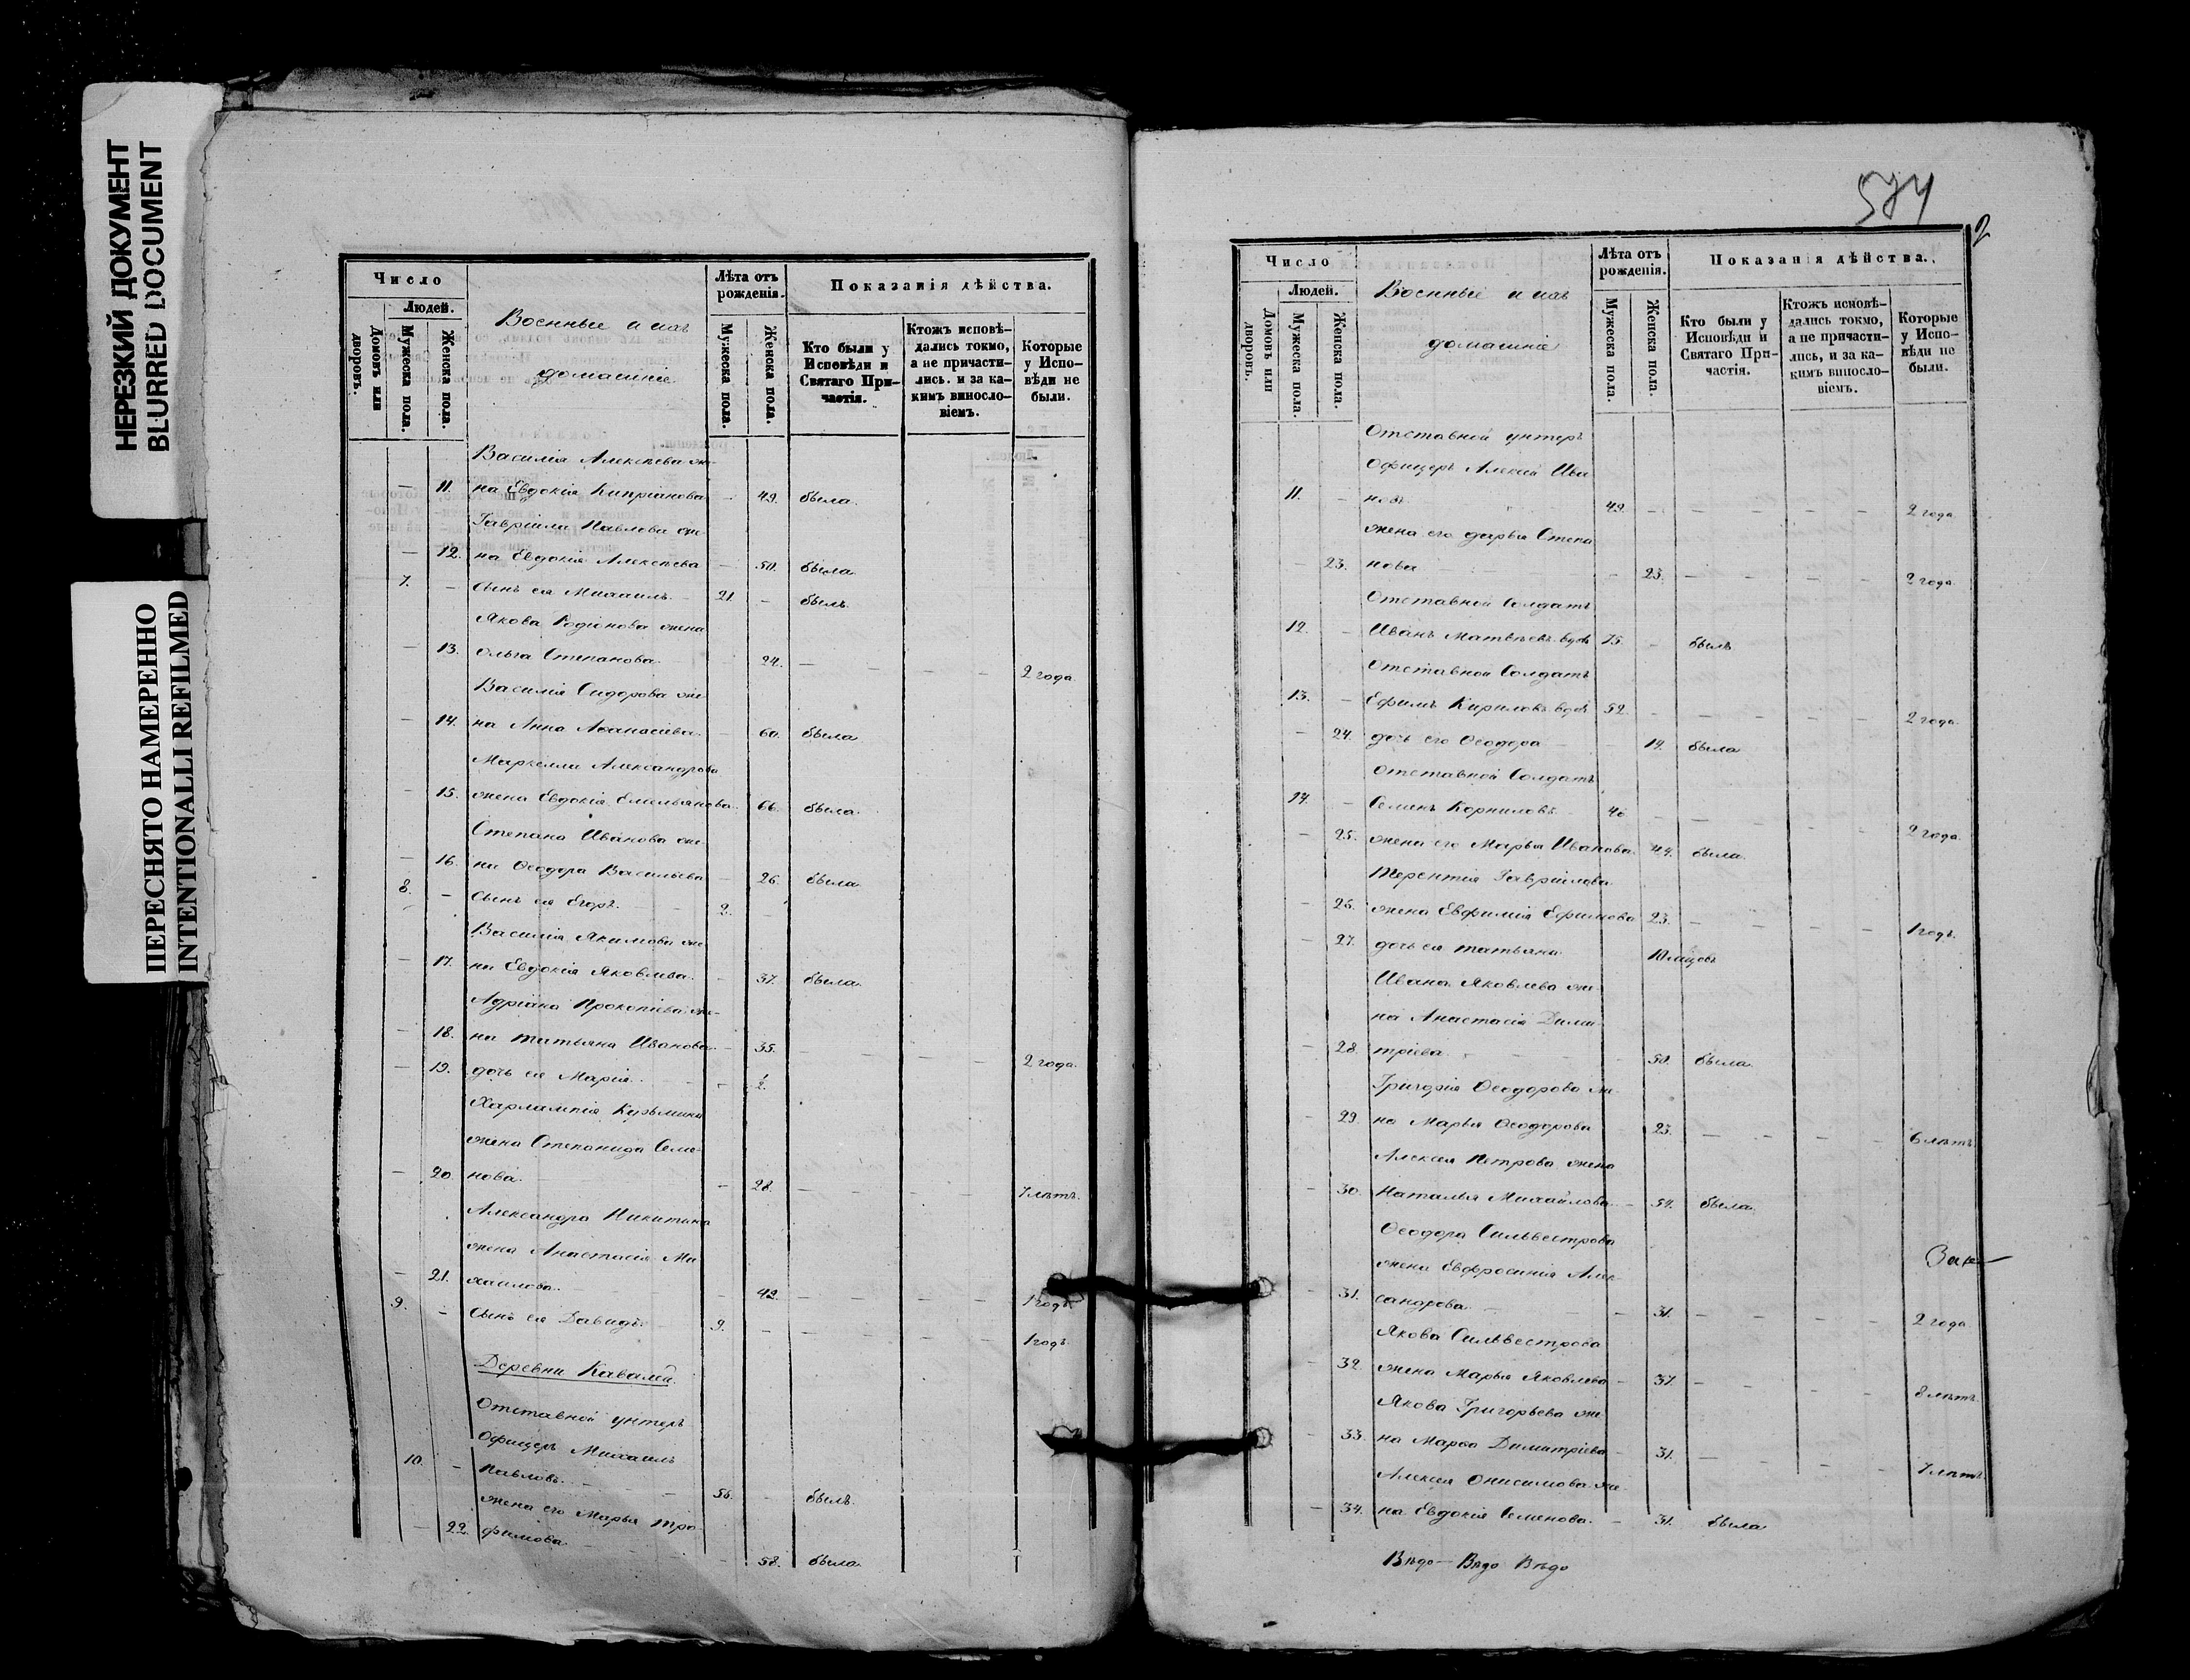 НЕРЕЗКИЙ ДОКУМЕНТ
BLURRED DOCUMENT
ПЕРЕСНЯТО НАМЕРЕННО
INTENTIONALLI REFILMED
Число
Людей.
Домовъ или дворовъ.
Мужеска пола.
Женска пола.
Военные и ихъ
домашніе
Лѣта отъ рожденія.
Мужеска пола.
Женска пола.
Показанія дѣйства.
Кто были у Исповѣди и Святаго При-частія.
Ктожъ исповѣ-дались токмо, а не причасти-лись, и за ка-кимъ винослο-віемъ.
Которые у Испо-вѣди не были.
Василія Алексѣева же-
— 11. на Евдокія Кипріанова — 49. была.
Гавріила Павлова же-
— 12. на Евдокія Алексѣева — 50. была
7. — Сынъ ея Михаилъ — 21. — былъ
Якова Родіонова жена
— 13. Ольга Степанова. 24. — — — — 2 года.
Василія Сидорова же-
— 14. на Анна Аѳанасіева — 60. была
Маркелла Александрова
— 15. жена Евдокія Емельянова. 66. была.
Степана Иванова же-
— 16. на Ѳеодора Васильева — 26. была
8. — Сынъ ея Егоръ. — 2. —
Василія Якимова же-
— 17. на Евдокія Яковлева. — 37. была.
Адріана Прокопіева же-
— 18. на Татьяна Иванова. — 35. — — — — 2 года.
— 19. дочь ея Марія. — 2.
Харлампія Кузьмина
жена Степанида Семе-
— 20. нова. — 28. — — — — 7 лѣтъ.
Александра Никитина
жена Анастасія Ми-
— 21. хаилова. — 42. — — — — 1 годъ.
9. — Сынъ ея Давидъ. 9. — — — — — 1 годъ.
Деревни Кавалей.
Отставной унтеръ
Офицеръ Михаилъ
10. — Павловъ. — — 56. — былъ.
жена его Марья Тро-
— 22. фимова — — 58. была
574
2
Число
Людей.
Домовъ или дворовъ.
Мужеска пола.
Женска пола.
Военные и ихъ
домашніе
Лѣта отъ рожденія.
Мужеска пола.
Женска пола.
Показанія дѣйства.
Кто были у Исповѣди и Святаго При-частія.
Ктожъ исповѣ-дались токмо, а не причасти-лись, и за ка-кимъ винослο-віемъ.
Которые у Испо-вѣди не были.
Отставной унтеръ
Офицеръ Алексѣй Ива
11. — новъ 49. — — — — — 2 года
жена его Дарья Степа
— 23. нова — 23. — — — — 2 года.
Отставной Солдатъ
12. — Иванъ Матвѣевъ вдов 75. — былъ
Отставной Солдатъ
13. — Ефимъ Кириловъ вдов 52. — — — — — 2 года.
— 24. дочь его Ѳеодора — 19. была
Отставной Солдатъ
14. — Семенъ Корниловъ. 46 — — — — — 2 года.
— 25. жена его Марья Иванова. 44. была.
Терентія Гавріилова
— 26. жена Евфимія Ефимова 23. — — — — 1 годъ.
— 27. дочь ея Татьяна 10 мѣсяцовъ
Ивана Яковлева же-
на Анастасія Дими-
— 28. тріева. — 50. была.
Григорія Ѳеодорова же-
— 29. на Марья Ѳеодорова 23. — — — — 6 лѣтъ
Алексѣя Петрова жена
— 30. Наталья Михайлова — 54. была.
Ѳеодора Сильвестрова
жена Евфросинія Алек-
— 31. сандрова. — 31. — — — — 2 года.
Якова Сильвестрова
— 32. жена Марья Яковлева — 37. — — — — 8 лѣтъ.
Якова Григорьева же-
— 33. на Марѳа Димитріева — 31. — — — — 7 лѣтъ.
Алексѣя Онисимова же-
— 34. на Евдокія Семенова. — 31. была
Вѣдо — Вѣдо Вѣдо